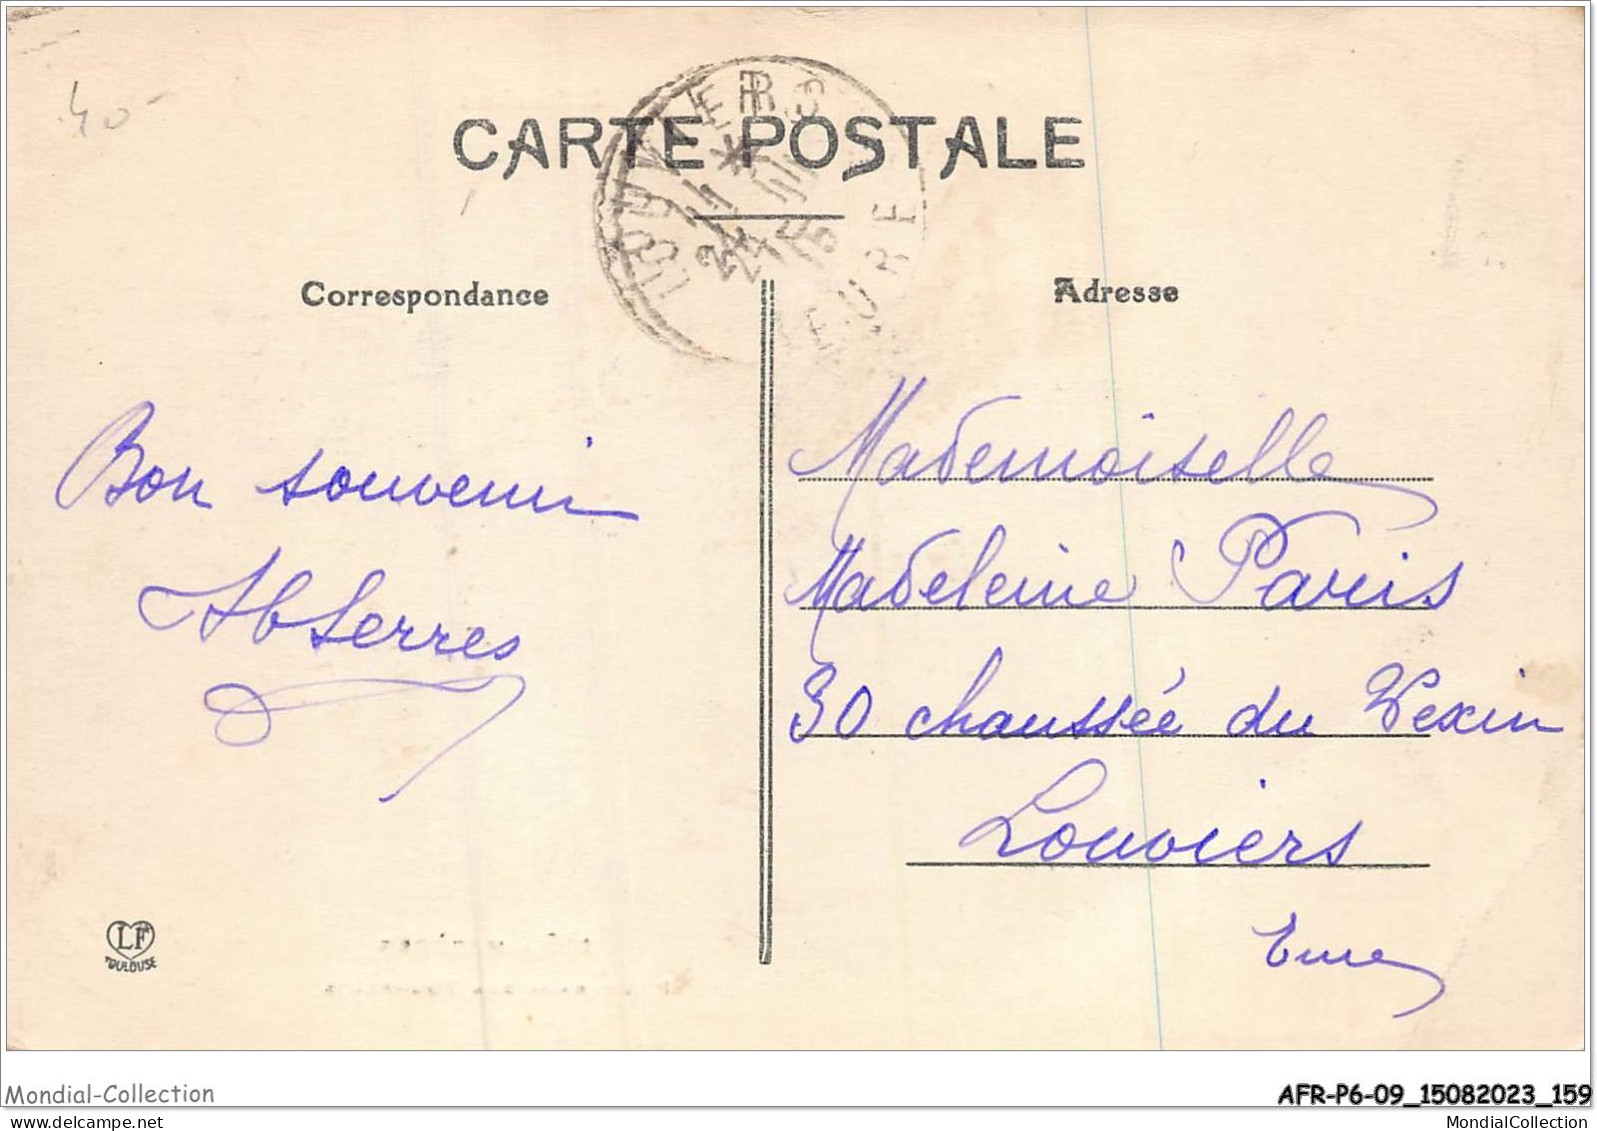 40-
CARTE POSTALE
LOUVIERS
EURE
Correspondance
Adresse
Bon souvenir
Mademoiselle
Madeleine Paris
30 chaussée du Vexin
Louviers
Eure
LF
TOULOUSE
Mondial-Collection
AFR-P6-09_15082023_159
mondialcollection
MondialCollection